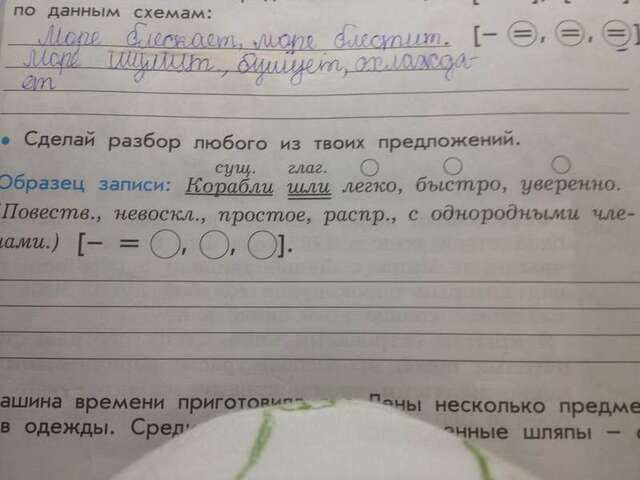 по данным схемам:
Море блескает, море блестит. [– ⊜, ⊜, ⊜]
Море шумит, бушует, охлажда-
ет
• Сделай разбор любого из твоих предложений.
сущ. глаг. ◯ ◯ ◯
Образец записи: Корабли шли легко, быстро, уверенно.
(Повеств., невоскл., простое, распр., с однородными чле-
нами.) [– = ◯, ◯, ◯].
ашина времени приготовила Лены несколько предме
в одежды. енные шляпы –